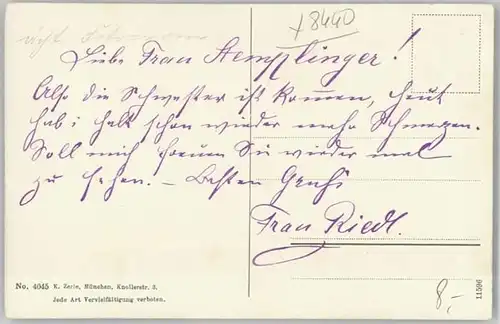 +8440
nicht
Liebe Frau Hempflinger!
Also die Schwester ist kommen, heut
hab i halt schon wieder mehr Schmerzen.
Soll mich freuen Sie wieder mal
zu sehen. – Besten Gruß
Frau Riedl.
No. 4045 K. Zerle, München, Knollerstr. 3.
Jede Art Vervielfältigung verboten.
11596
8,-